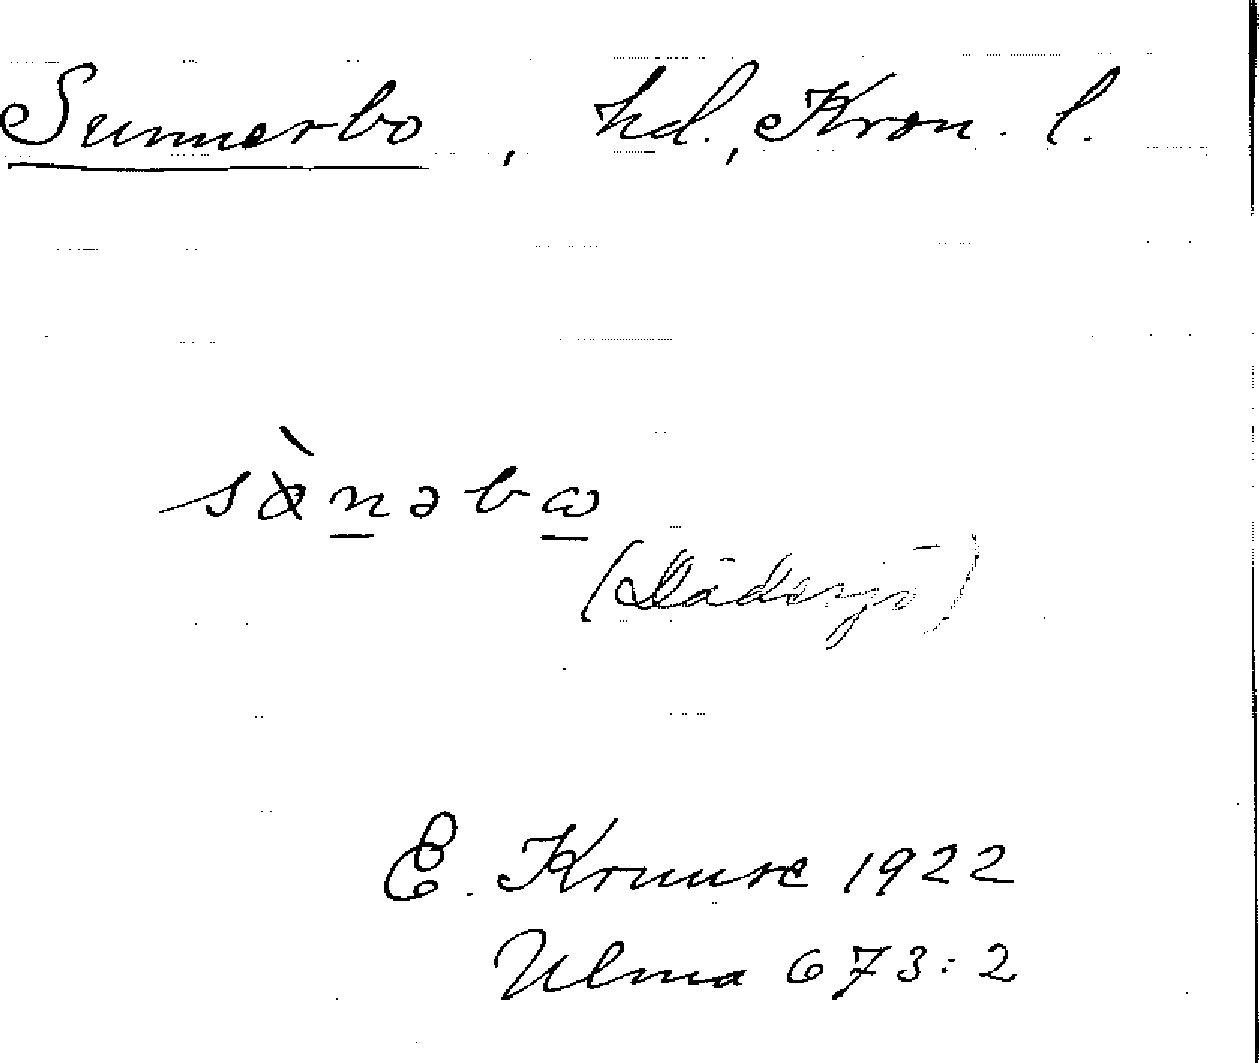 Sunnerbo, hd., Kron. l.
sànəbω
(Dädesjö)
E. Kruuse 1922
Ulma 673:2